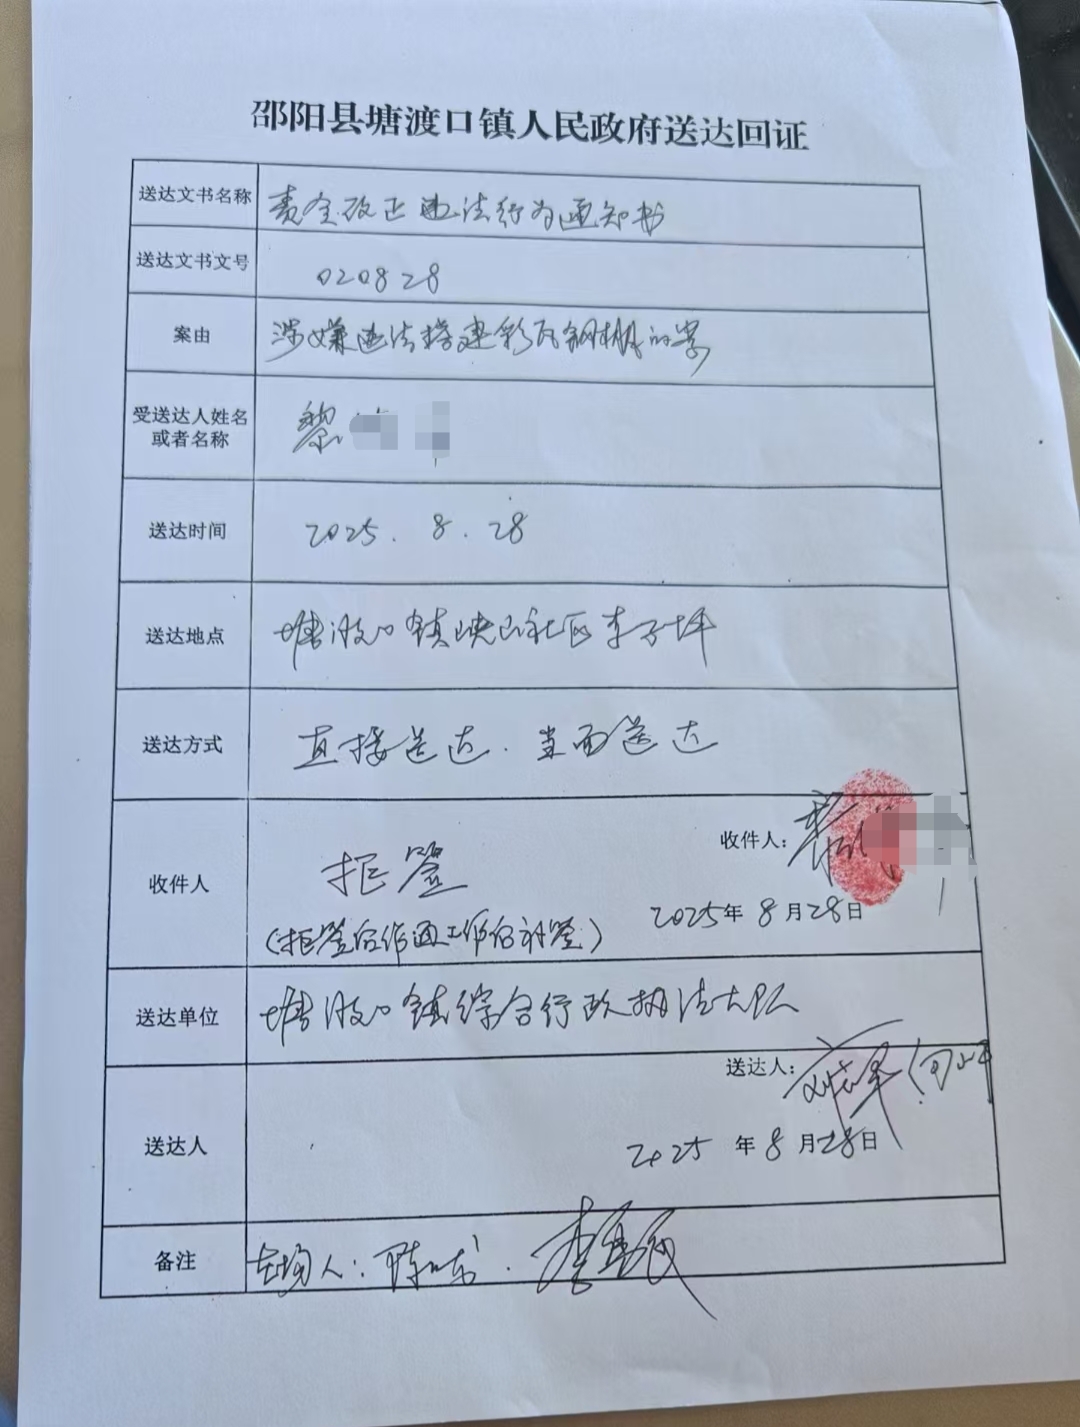 邵阳县塘渡口镇人民政府送达回证
送达文书名称 责令改正违法行为通知书
送达文书文号 020828
案由 涉嫌违法搭建彩瓦钢棚的案
受送达人姓名
或者名称 黎
送达时间 2025.8.28
送达地点 塘渡口镇映山社区李子坪
送达方式 直接送达.当面送达
收件人 拒签
(拒签后作通工作后补签)
收件人: 黎
2025年8月28日
送达单位 塘渡口镇综合行政执法大队
送达人 送达人:
2025年8月28日
备注 在场人: 陈